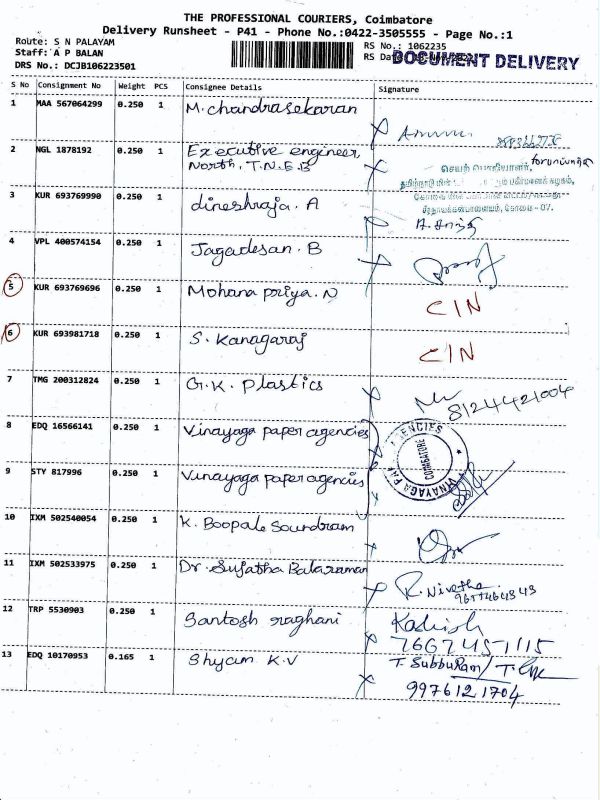 THE PROFESSIONAL COURIERS, Coimbatore
Delivery Runsheet - P41 - Phone No.:0422-3505555 - Page No.:1
Route: S N PALAYAM
Staff: A P BALAN
DRS No.: DCJB106223501
RS No.: 1062235
RS Dat
DOCUMENT DELIVERY
S No Consignment No Weight PCS Consignee Details Signature
1 MAA 567064299 0.250 1 M. chandrasekaran
2 NGL 1878192 0.250 1 Executive engineer,
North, T.N.E.B
செயற் பொறியாளர்,
3 KUR 693769990 0.250 1 dineshraja. A
4 VPL 400574154 0.250 1 Jagadesan. B
5 KUR 693769696 0.250 1 Mohana priya. N CIN
6 KUR 693981718 0.250 1 S. Kanagaraj CIN
7 TMG 200312824 0.250 1 G.K. Plastics 8124421004
8 EDQ 16566141 0.250 1 Vinayaga paper agencies
VINAYAGA PAP AGENCIES
COIMBATORE
9 STY 817996 0.250 1 Vinayaga paper agencies
10 IXM 502540054 0.250 1 K. Boopale Soundram
11 IXM 502533975 0.250 1 Dr. Sujatha Balaraman R. Nivetha
12 TRP 5530903 0.250 1 Santosh raghani Kadish
7667451115
13 EDQ 10170953 0.165 1 Shyam K.V T. SubbuRam/
9976121704